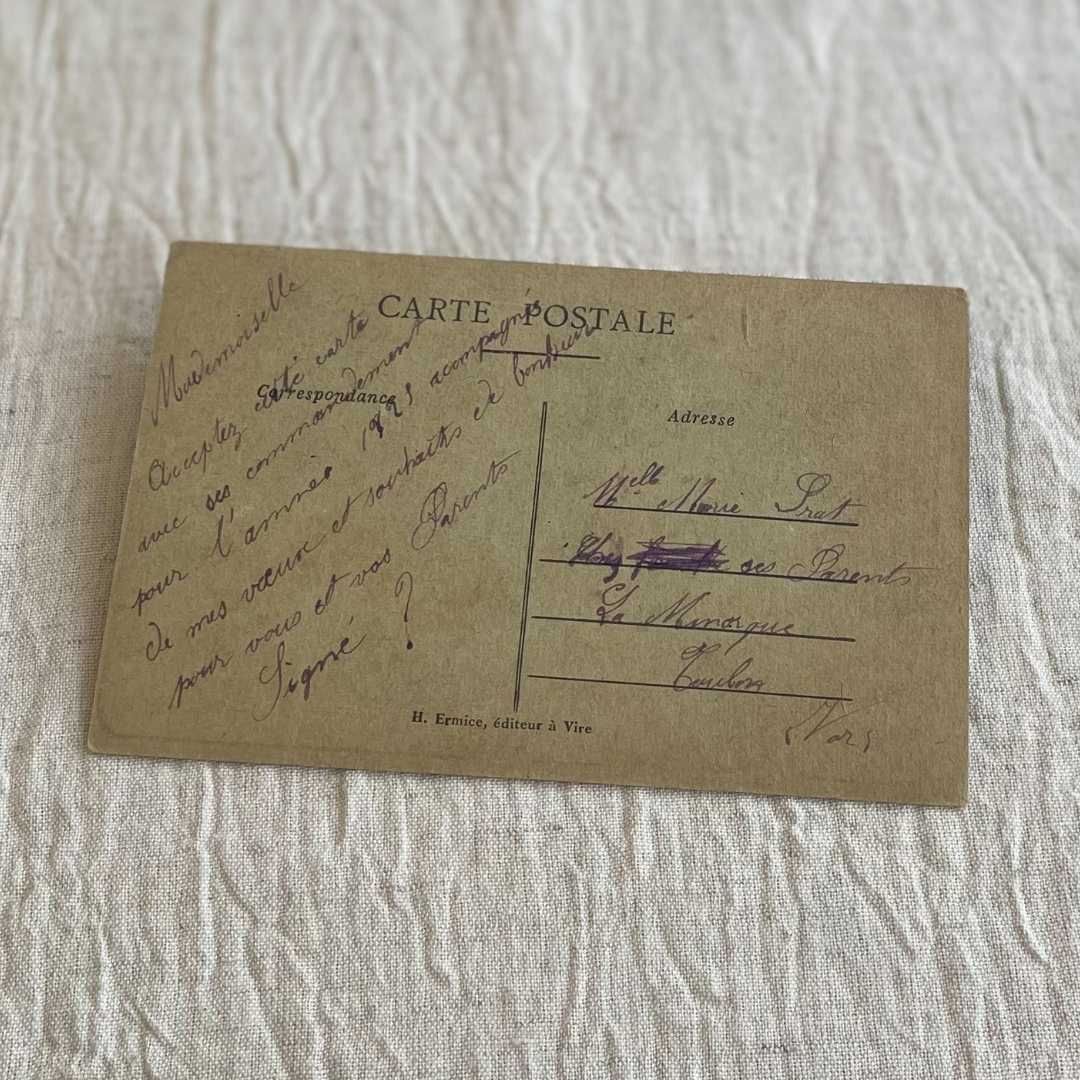 CARTE POSTALE
Correspondance
Mademoiselle
Acceptez cette carte
avec ses commandement
pour l'année acompagné
de mes vœux et souhaits de bonheur
pour vous et vos Parents
Signé ?
Adresse
Melle Marie Prat
Chez ses Parents
La Minorque
Toulon
(Var)
H. Ermice, éditeur à Vire